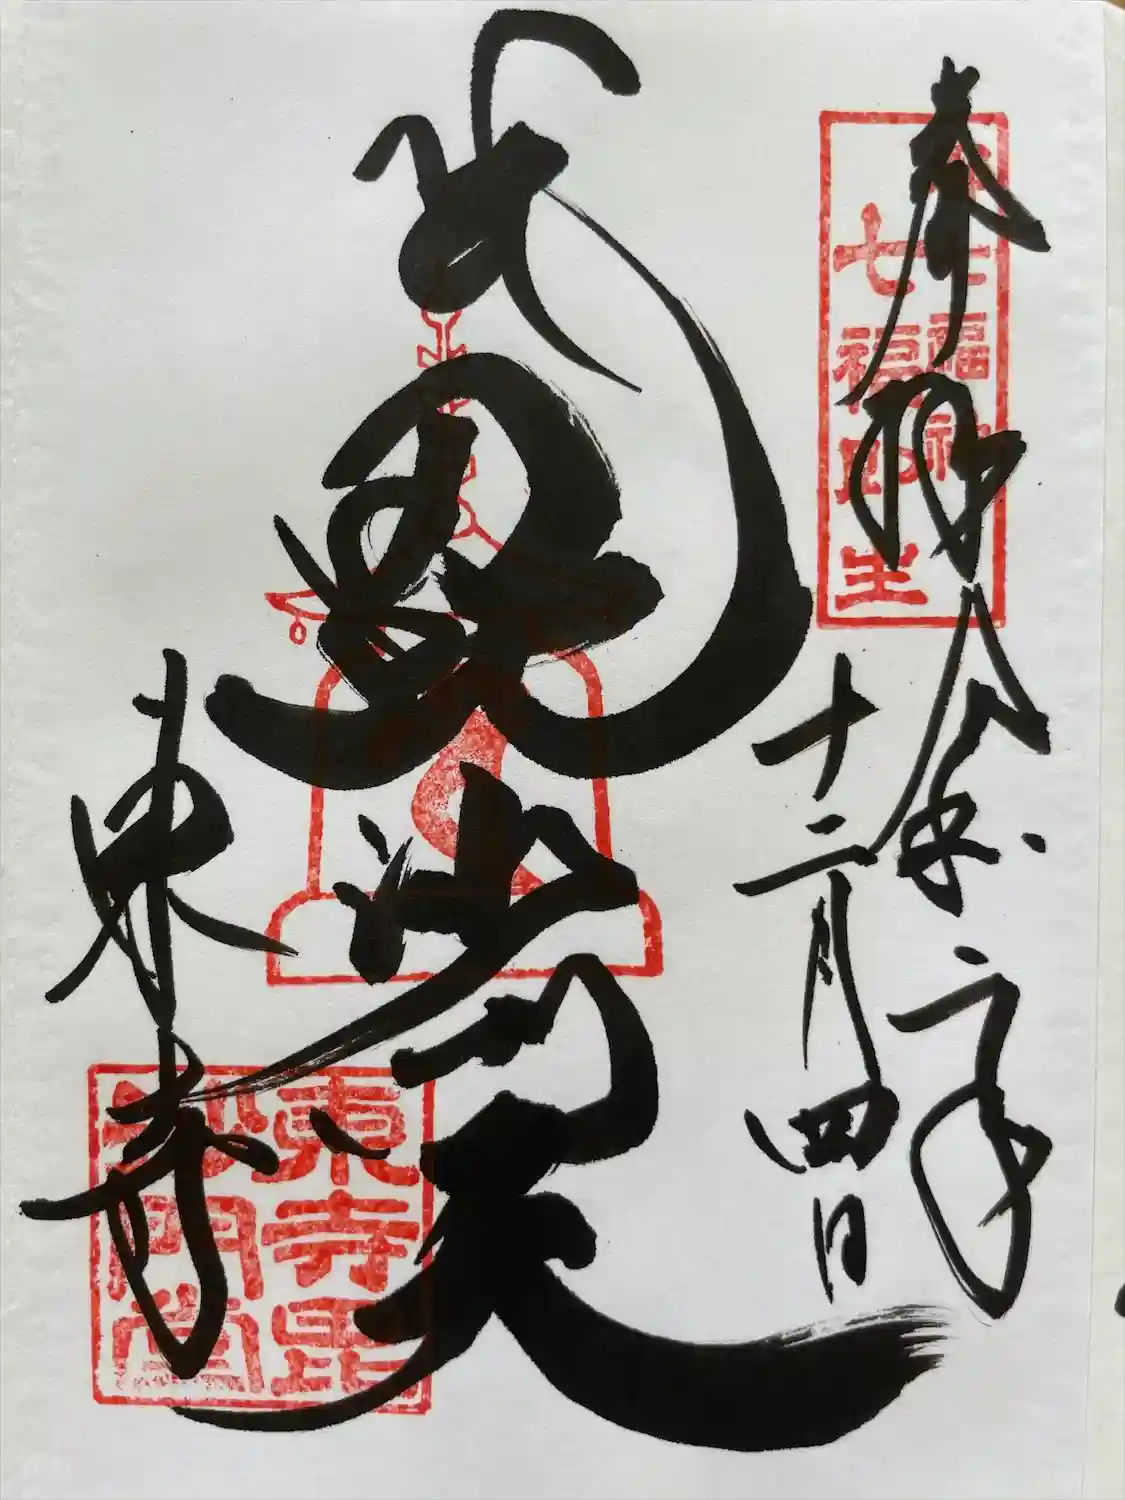 奉拝 令和 年
十二月四日
都七福神
七福即生
毘沙門天
東寺
東寺毘
沙門堂